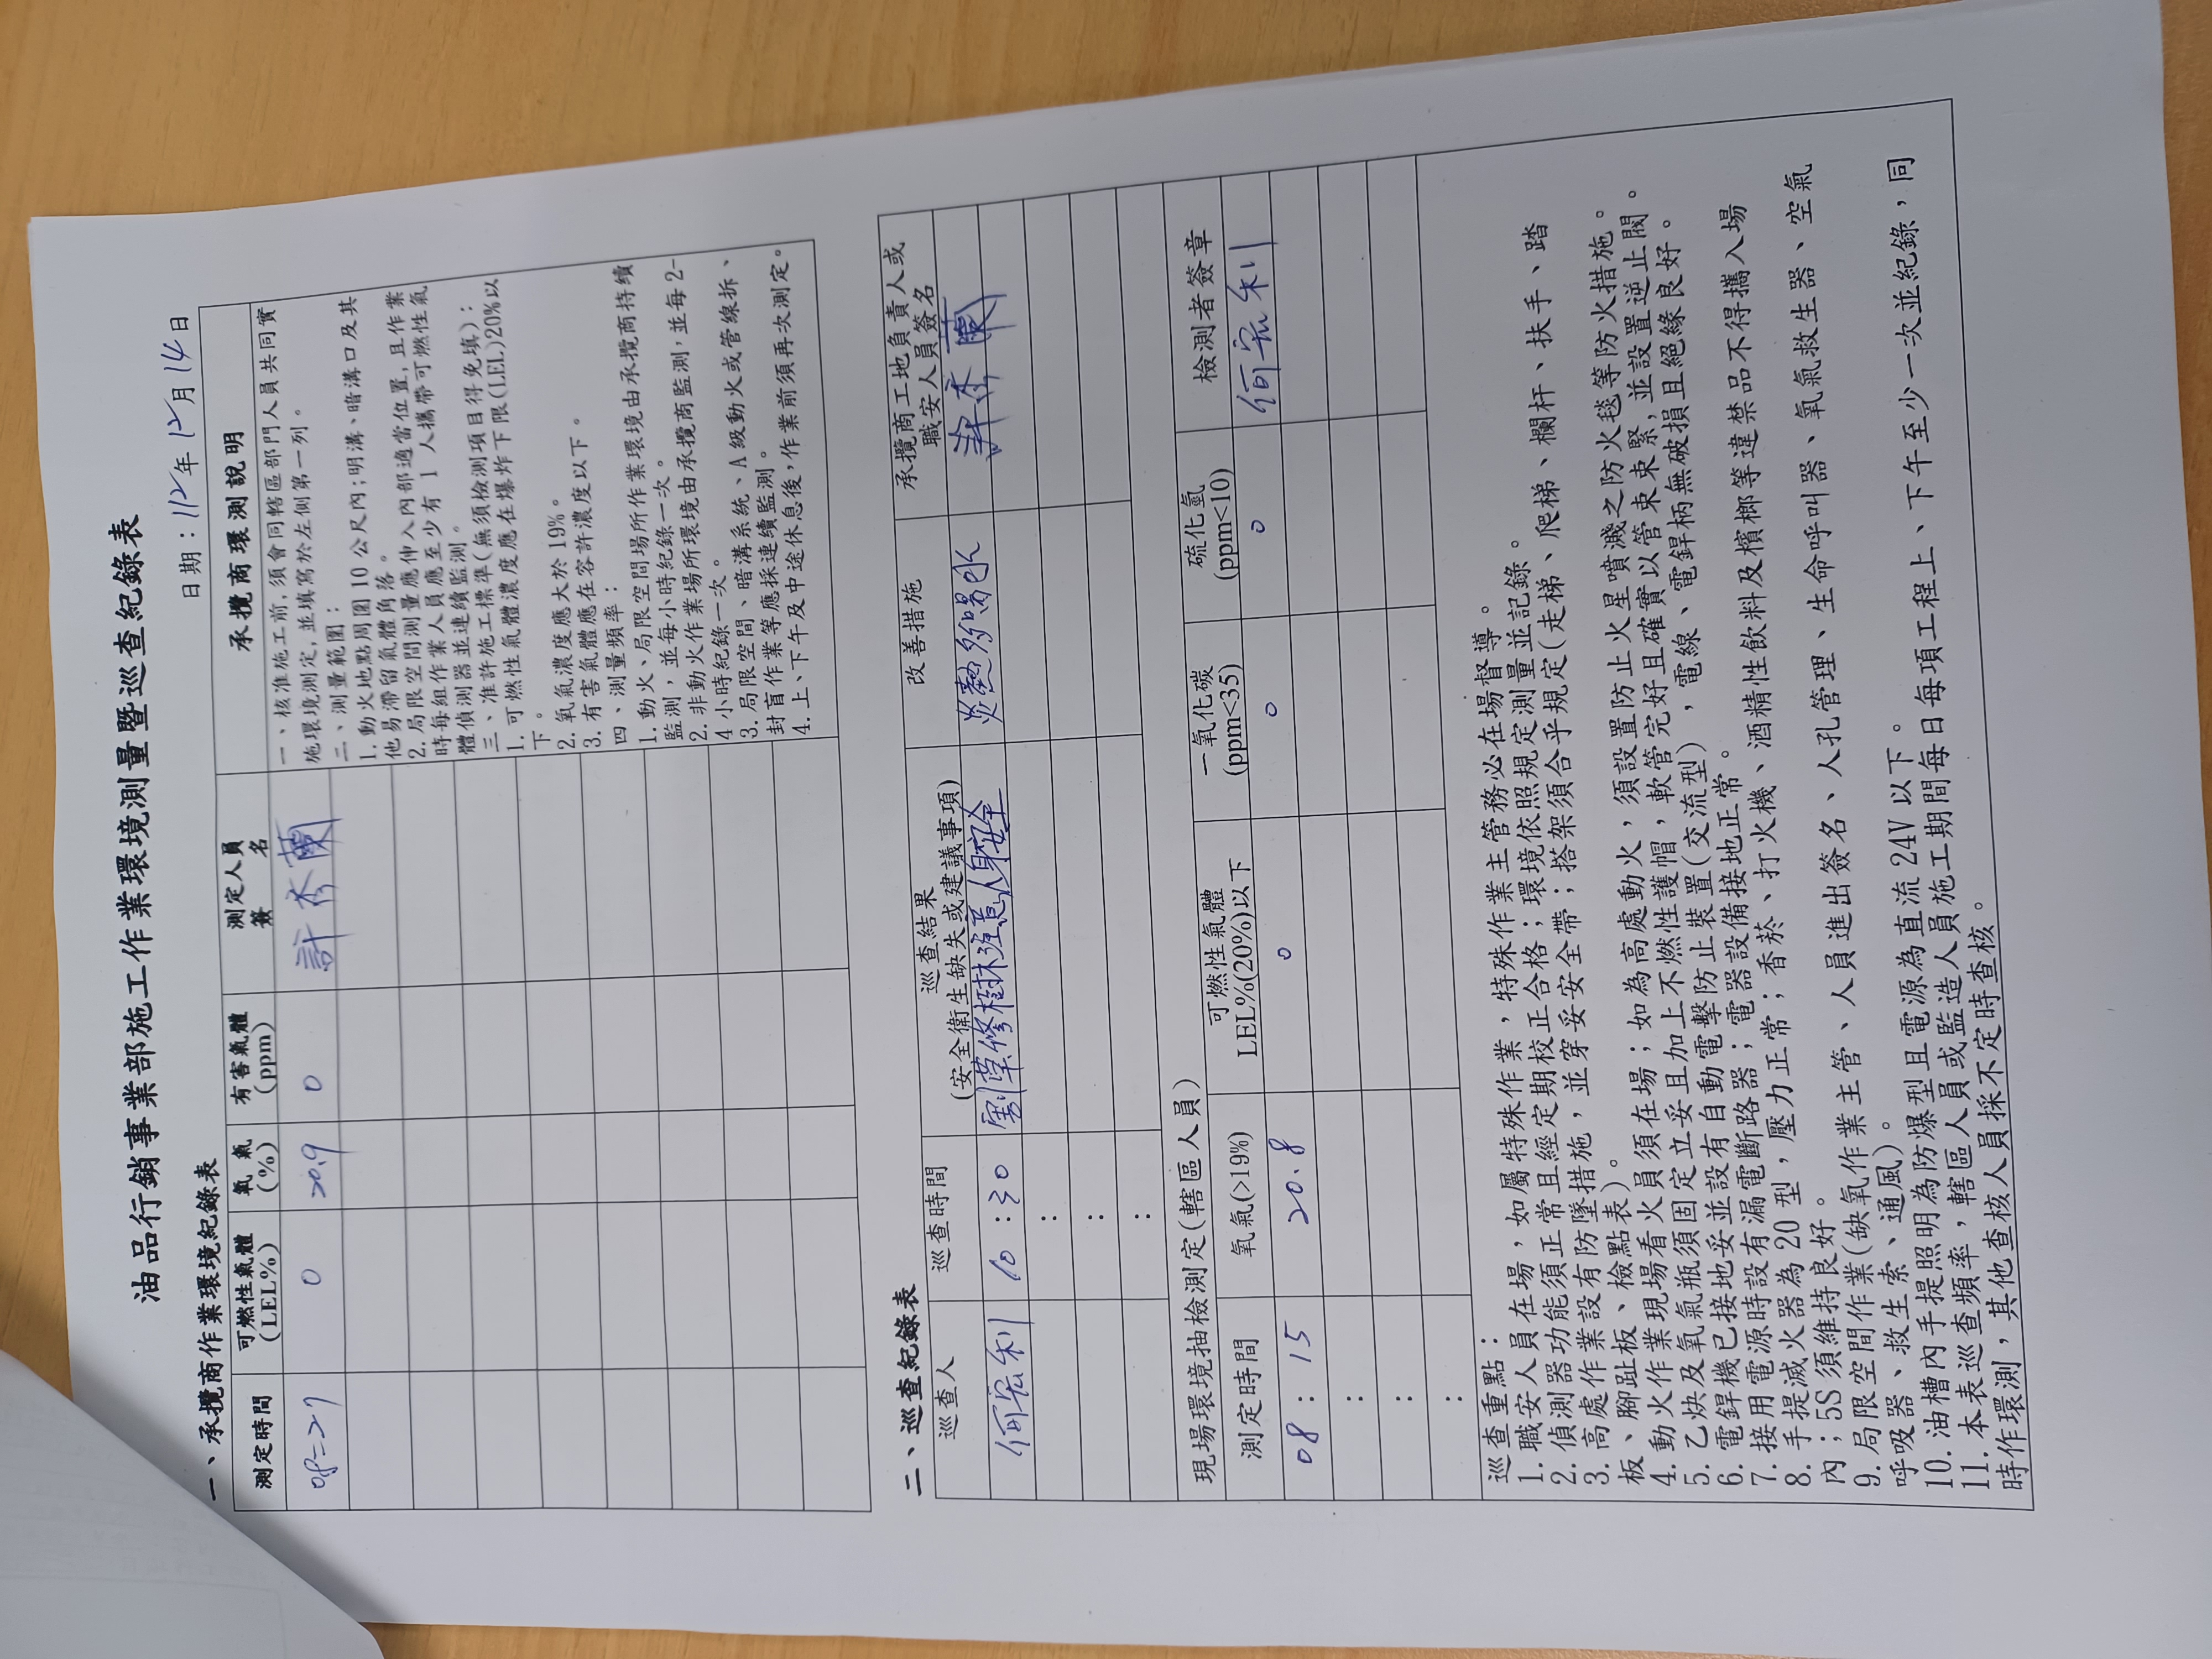 油品行銷事業部施工作業環境測量暨巡查紀錄表
日期：112年12月14日
一、承攬商作業環境紀錄表
測定時間 可燃性氣體（LEL%） 氧氣（%） 有害氣體（ppm） 測定人員簽名 承攬商環測說明
08:27 0 20.9 0 許秀蘭
一、核准施工前,須會同轄區部門人員共同實
施環境測定,並填寫於左側第一列。
二、測量範圍：
1.動火地點周圍10公尺內;明溝、暗溝口及其
他易滯留氣體角落。
2.局限空間測量應伸入內部適當位置,且作業
時每組作業人員應至少有 1 人攜帶可燃性氣
體偵測器並連續監測。
三、准許施工標準(無須檢測項目得免填)：
1.可燃性氣體濃度應在爆炸下限(LEL)20%以
下。
2.氧氣濃度應大於19%。
3.有害氣體應在容許濃度以下。
四、測量頻率：
1.動火、局限空間場所作業環境由承攬商持續
監測，並每小時紀錄一次。
2.非動火作業場所環境由承攬商監測，並每2-
4小時紀錄一次。
3.局限空間、暗溝系統、A級動火或管線拆、
封盲作業等應採連續監測。
4.上、下午及中途休息後，作業前須再次測定。
二、巡查紀錄表
巡查人 巡查時間 巡查結果(安全衛生缺失或建議事項) 改善措施 承攬商工地負責人或職安人員簽名
何宏利 10:30 割草修樹林注意人身安全 炎熱多喝水 許秀蘭
:
:
:
現場環境抽檢測定(轄區人員)
測定時間 氧氣(>19%) 可燃性氣體LEL%(20%)以下 一氧化碳(ppm<35) 硫化氫(ppm<10) 檢測者簽章
08:15 20.8 0 0 0 何宏利
:
:
:
巡查重點：
1.職安人員在場，如屬特殊作業，特殊作業主管務必在場督導。
2.偵測器功能須正常且經定期校正合格；環境依照規定測量並記錄。
3.高處作業設有防墜措施，並穿妥安全帶；搭架須合乎規定(走梯、爬梯、欄杆、扶手、踏
板、腳趾板、檢點表)。
4.動火作業現場看火員須在場；如為高處動火，須設置防止火星噴濺之防火毯等防火措施。
5.乙炔及氧氣瓶須固定立妥且加上不燃性護帽，軟管完好且確實以管束束緊,並設置逆止閥。
6.電銲機已接地妥並設有自動電擊防止裝置(交流型)，電線、電銲柄無破損且絕緣良好。
7.接用電源時設有漏電斷路器；電器設備接地正常。
8.手提滅火器為20型，壓力正常；香菸、打火機、酒精性飲料及檳榔等違禁品不得攜入場
內；5S須維持良好。
9.局限空間作業(缺氧作業主管、人員進出簽名、人孔管理、生命呼叫器、氧氣救生器、空氣
呼吸器、救生索、通風)。
10.油槽內手提照明為防爆型且電源為直流24V以下。
11.本表巡查頻率，轄區人員或監造人員施工期間每日每項工程上、下午至少一次並紀錄，同
時作環測，其他查核人員採不定時查核。